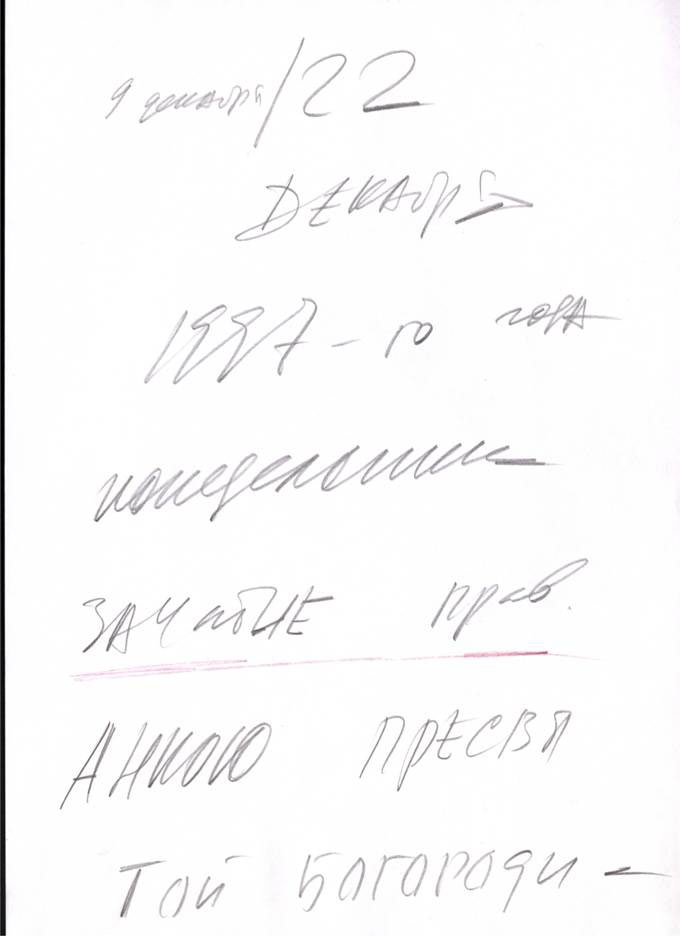 9 декабря/22
ДЕКАбря
1997-го года
понедельник
ЗАЧАТИЕ прав.
АННОЮ ПРЕСВЯ
Той БОГОРОДИ-